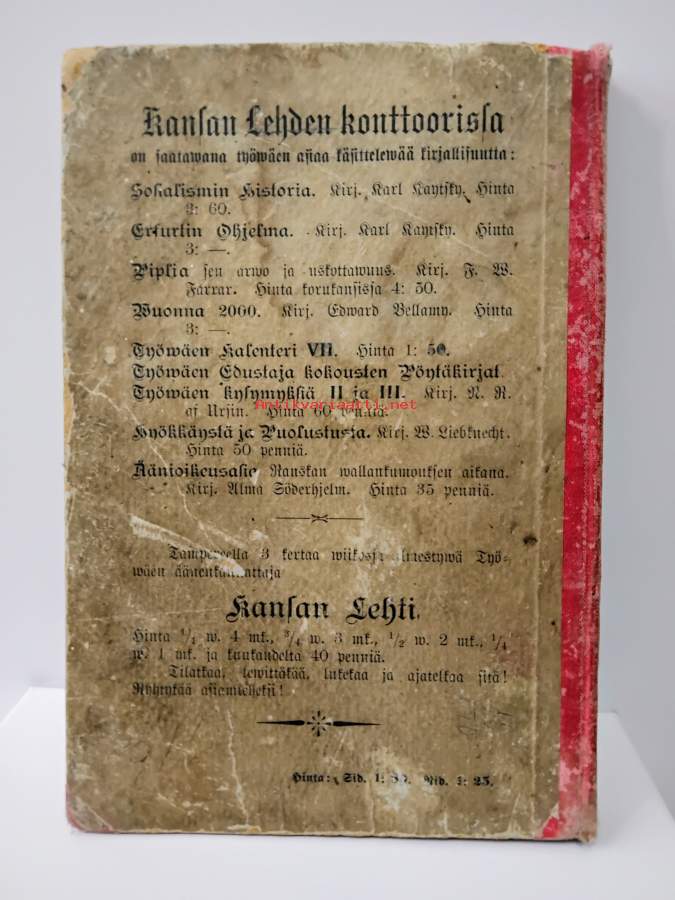 Kansan Lehden konttoorissa
on saatawana työwäen asiaa käsittelewää kirjallisuutta:
Sosialismin Historia. Kirj. Karl Kautsky. Hinta
3: 60.
Erfurtin Ohjelma. Kirj. Karl Kautsky. Hinta
3: —.
Piplia sen arwo ja uskottawuus. Kirj. F. W.
Farrar. Hinta korukansissa 4: 50.
Wuonna 2000. Kirj. Edward Bellamy. Hinta
3: —.
Työwäen Kalenteri VII. Hinta 1: 50.
Työwäen Edustaja kokousten Pöytäkirjat.
Työwäen kysymyksiä II ja III. Kirj. N. R.
af Ursin. Hinta 60 penniä.
Antikvariaatti.net
Hyökkäystä ja Puolustusta. Kirj. W. Liebknecht.
Hinta 50 penniä.
Äänioikeusasia Ranskan wallankumouksen aikana.
Kirj. Alma Söderhjelm. Hinta 35 penniä.
Tampereella 3 kertaa wiikossa ilmestywä Työ-
wäen äänenkannattaja
Kansan Lehti.
Hinta 1/1 w. 4 mk., 3/4 w. 3 mk., 1/2 w. 2 mk., 1/4
w. 1 mk. ja kuukaudelta 40 penniä.
Tilatkaa, lewittäkää, lukekaa ja ajatelkaa sitä!
Ryhtykää asiamieheksi!
Hinta: Sid. 1: Nid. 25.